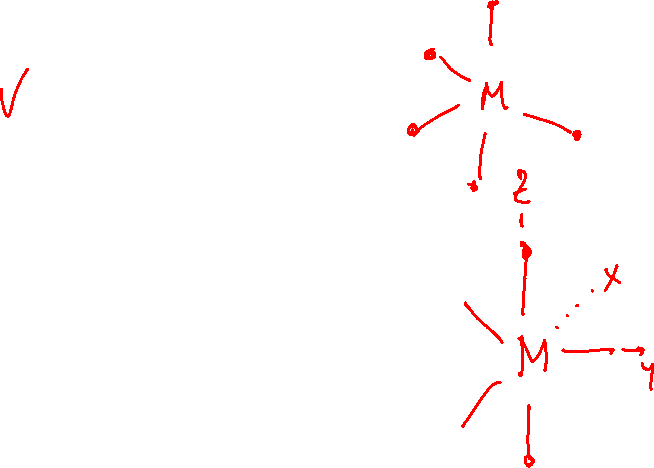 V
M
z
x
M
y